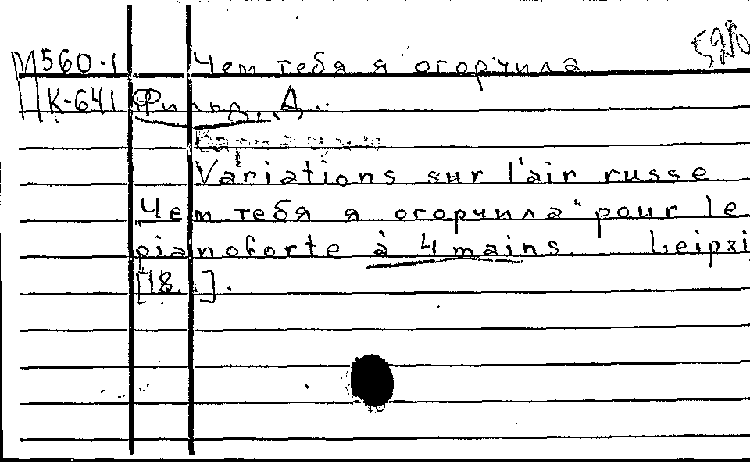 М560-1 Чем тебя я огорчила 5980
К-641 Фильд, Д.
Variations sur l'air russe
"Чем тебя я огорчила" pour le
pianoforte à 4 mains. Leipzi
[18..].